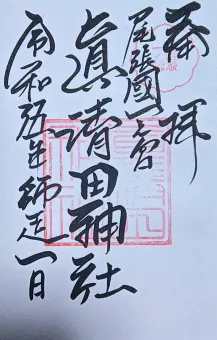 奉拝
尾張國一之宮
真清田神社
令和五年師走一日